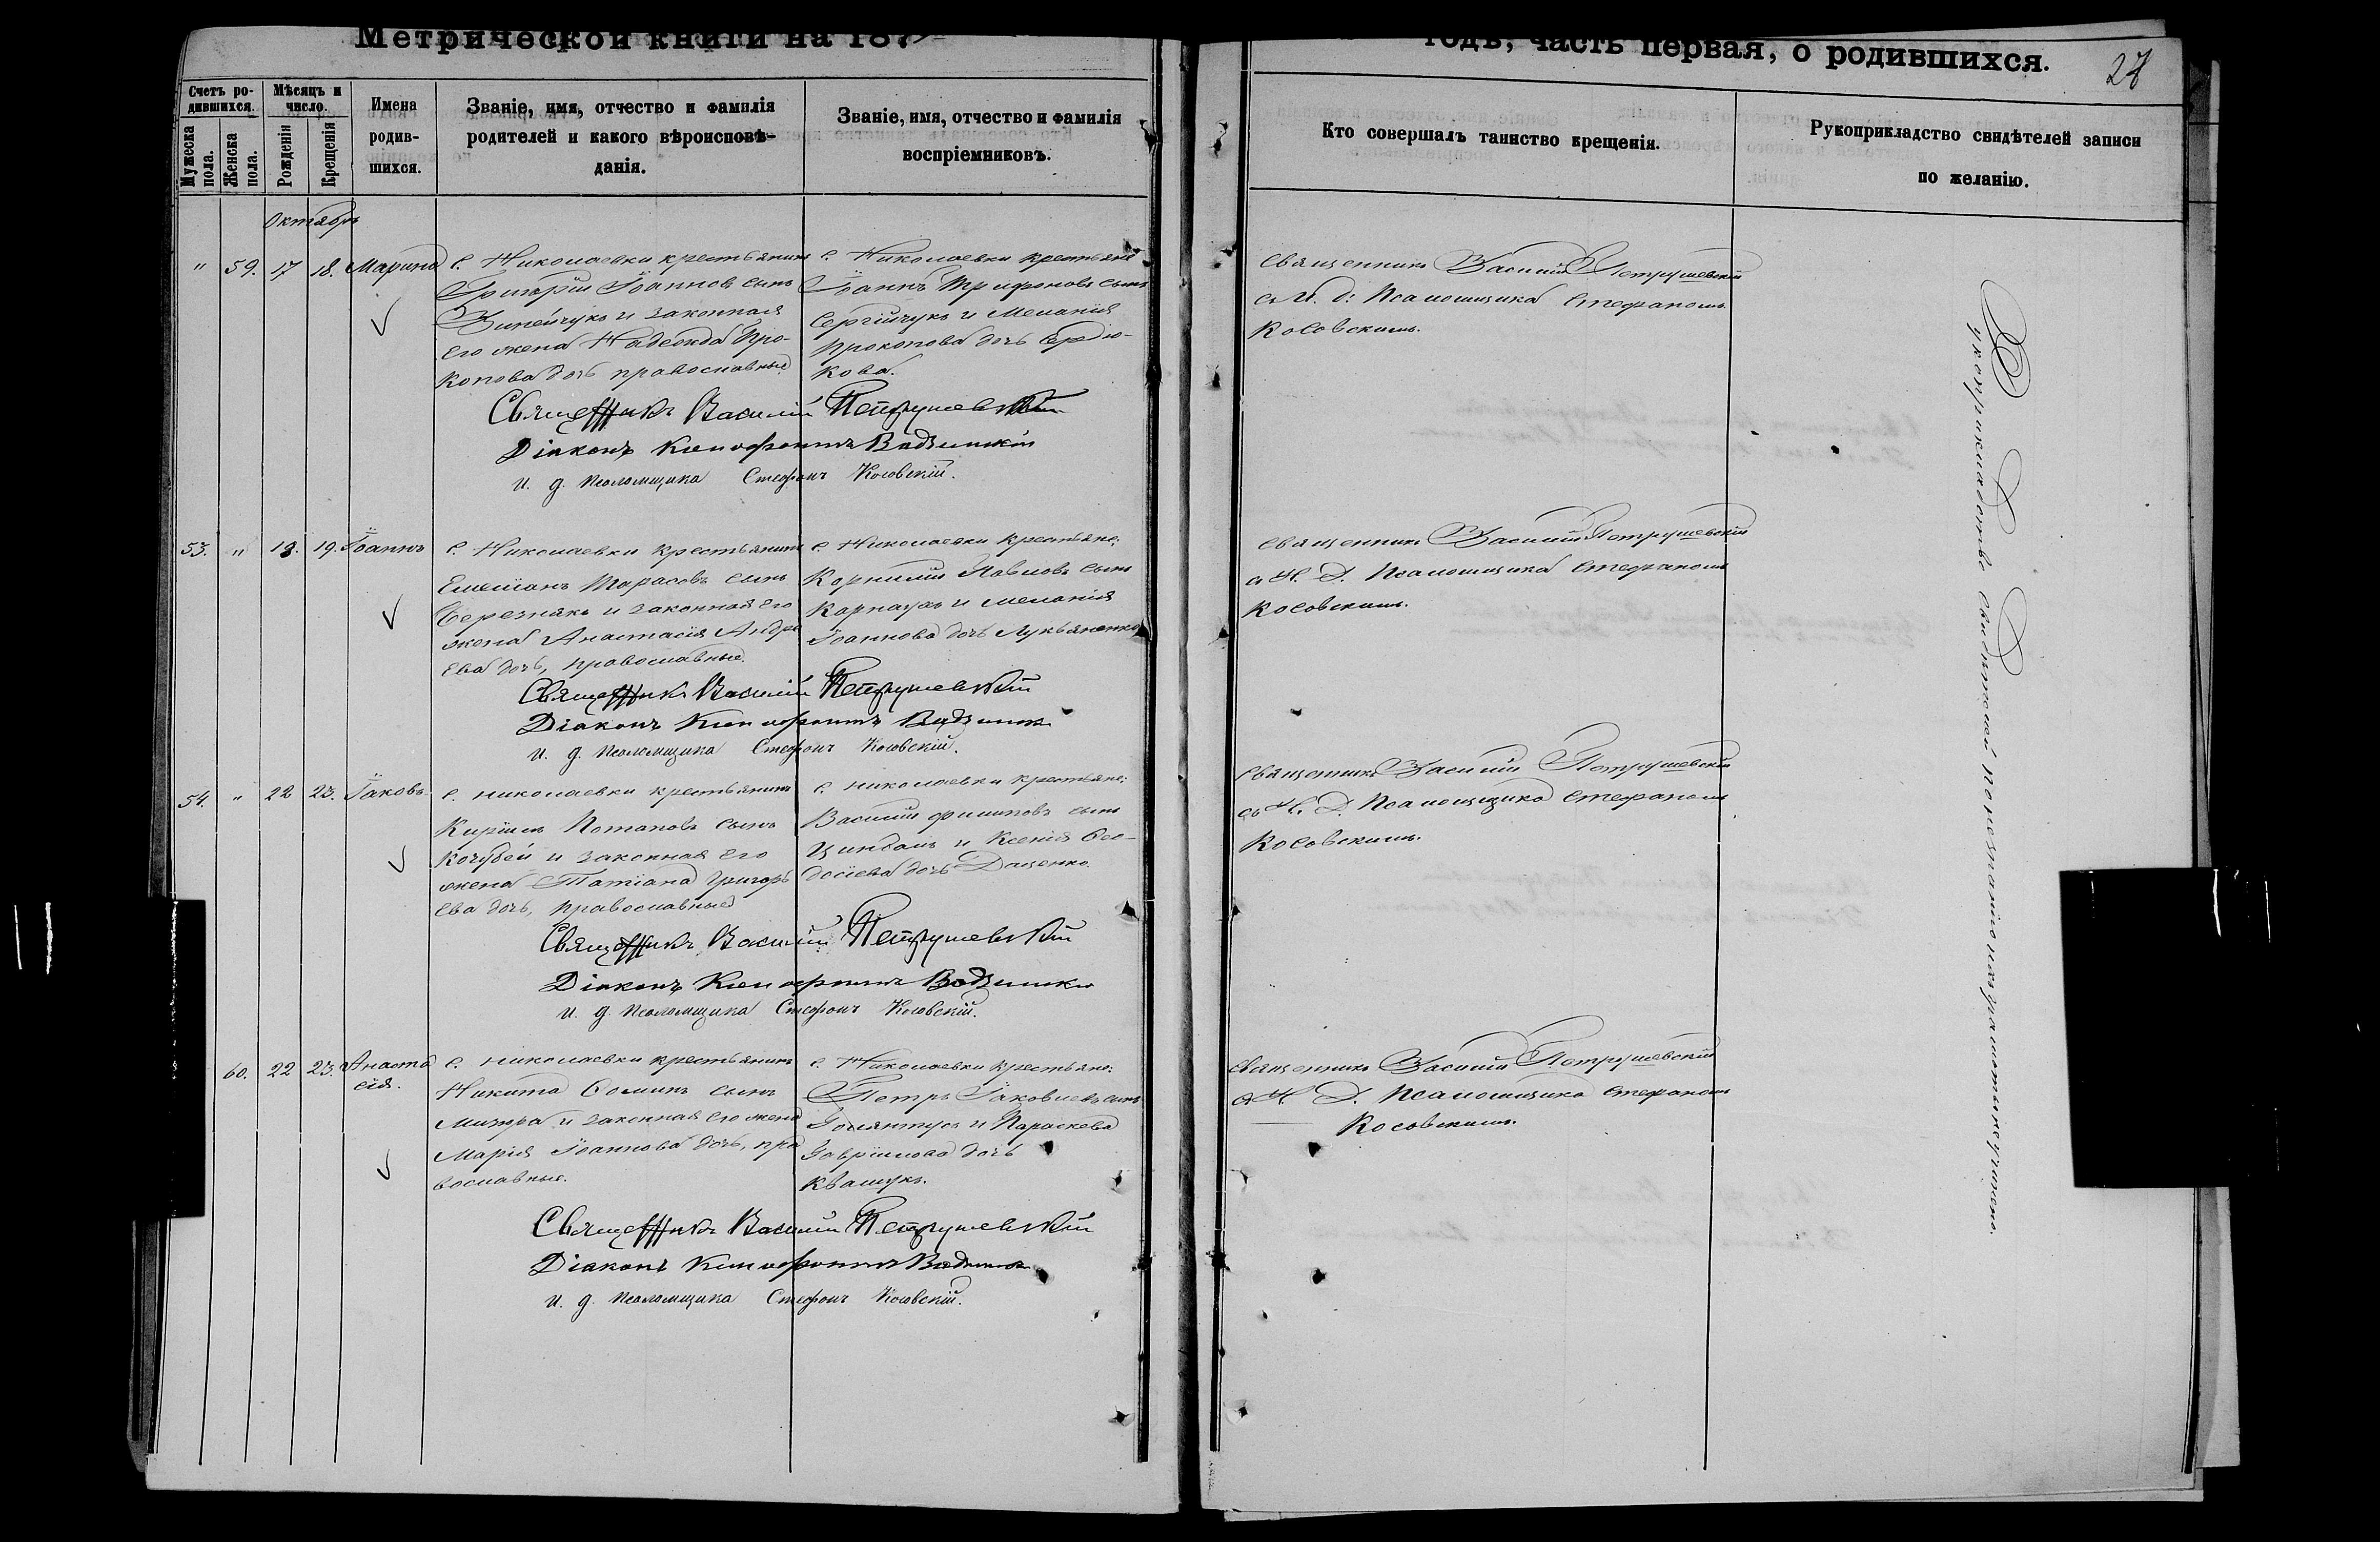 Метрической книги на 187
годъ, часть первая, о родившихся.
27
Счетъ ро-
дившихся.
Мужеска пола.
Женска пола.
Мѣсяцъ и
число.
Рожденія
Крещенія
Имена
родив-
шихся.
Званіе, имя, отчество и фамилія
родителей и какого вѣроисповѣ-
данія.
Званіе, имя, отчество и фамилія
воспріемниковъ.
Кто совершалъ таинство крещенія.
Рукоприкладство свидѣтелей записи
по желанію.
Октябрь
" 59. 17 18. Марина
с. Николаевки крестьянинъ
Григорій Іоанновъ сынъ
Зинейчукъ и законная
его жена Надежда Про-
копова дочь православные
с. Николаевки крестьяне
Іоаннъ Трифоновъ сынъ
Сергійчукъ и Меланія
Прокопова дочь Сердю-
кова.
Священникъ Василій Петрушевскій
съ И. д: Псаломщика Стефаномъ
Косовскимъ.
Священникъ Василій Петрушевскій
Діаконъ Ксенофонтъ
и. д. Псаломщика Стефанъ Косовскій.
53. " 18. 19. Іоаннъ
с. Николаевки крестьянинъ
Емеліанъ Тарасовъ сынъ
Березнякъ и законная его
жена Анастасія Андре
ева дочь, православные.
с. Николаевки крестьяне:
Корнилій Павловъ сынъ
Карнаухъ и Меланія
Іоаннова дочь Лукьяненко
Священникъ Василій Петрушевскій
съ И. Д. Псаломщика Стефаномъ
Косовскимъ.
Священникъ Василій Петрушевскій
Діаконъ Ксенофонтъ
и. д. Псаломщика Стефанъ Косовскій.
54. " 22 23. Іаковъ.
с. Николаевки крестьянинъ
Кирилъ Потаповъ сынъ
Кочубей и законная его
жена Татіана Григорь
ева дочь, православные
с. Николаевки крестьяне:
Василій Филиповъ сынъ
Цындаль и Ксенія Ѳео-
досіева дочь Даценко.
Священникъ Василій Петрушевскій
съ И. Д. Псаломщика Стефаномъ
Косовскимъ.
Священникъ Василій Петрушевскій
Діаконъ Ксенофонтъ
и. д. Псаломщика Стефанъ Косовскій.
60. 22 23. Анаста
сія.
с. Николаевки крестьянинъ
Никита Ѳоминъ сынъ
и законная его жена
Марія Іоаннова дочь, пра
вославные.
с. Николаевки крестьяне:
Петръ Іаковлевъ сынъ
и Параскева
Гавріилова дочь
Квашукъ.
Священникъ Василій Петрушевскій
съ И. Д. Псаломщика Стефаномъ
Косовскимъ.
Священникъ Василій Петрушевскій
Діаконъ Ксенофонтъ
и. д. Псаломщика Стефанъ Косовскій.
Рукоприкладство свидѣтелей по незнанію